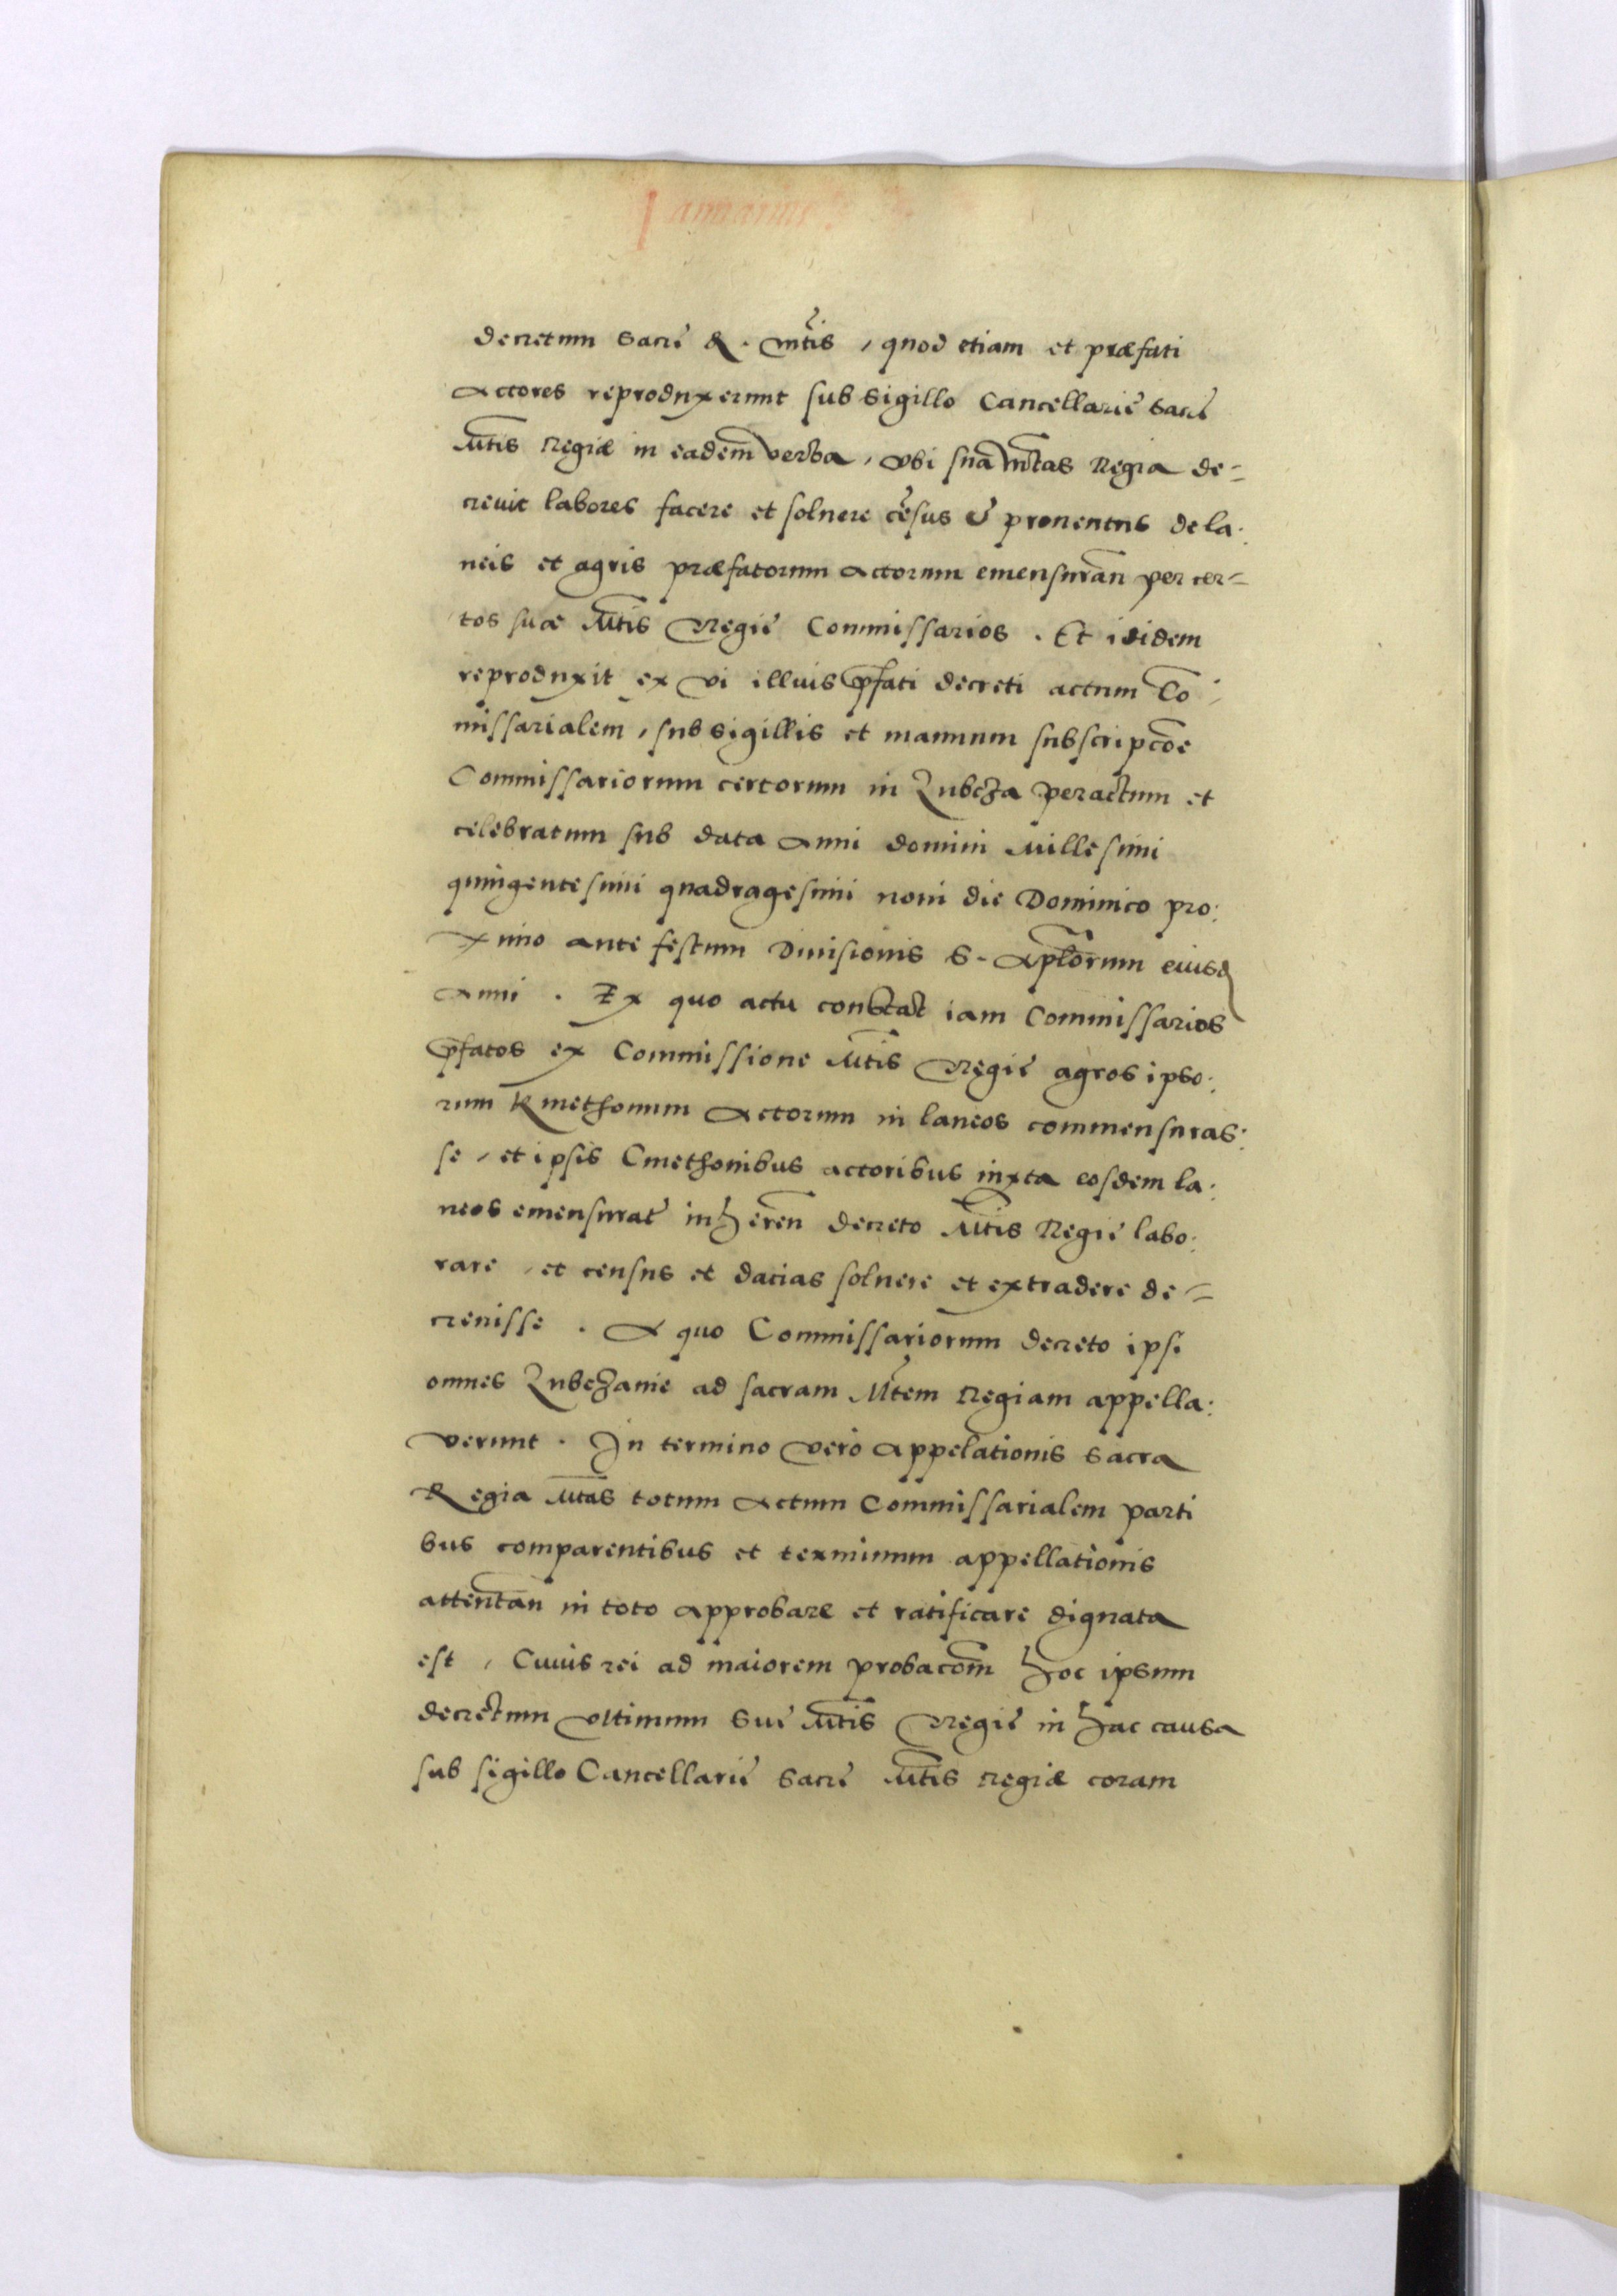 Januarius
decretum Sacrę R. Mtis, quod etiam et præfati
Actores reproduxerunt sub sigillo Cancellarię Sacrę
Mtis Regiæ in eadem verba, vbi sua Mtas Regia de=
crevit labores facere et soluere cēsus & prouentus de la:
neis et agris præfatorum Actorum emensuran̄ per cer=
tos suæ Mtis Regię Commissarios. Et ibidem
reproduxit ex vi illius p̄fati decreti actum Co=
missarialem, sub sigillis et manuum subscripcōe
Commissariorum certorum in Zubcza peractum et
celebratum sub data Anni domini Millesimi
quingentesimi quadragesimi noni die Dominico pro:
ximo ante festum Diuisionis S. Apl̄orum eiusd
Anni. Ex quo actu constat iam Commissarios
p̄fatos ex Commissione Mtis Regię agros ipso:
rum Kmethonum Actorum in laneos commensuras:
se, et ipsis Cmethonibus actoribus iuxta eosdem la:
neos emensurat̄ inhęren̄ decreto Mtis Regię labo:
rare, et census et dacias soluere et extradere de=
creuisse. A quo Commissariorum decreto ipsi
omnes Zubczanie ad sacram Mtem Regiam appella:
verunt. In termino vero Appelationis Sacra
Regia Mtas totum Actum Commissarialem parti
bus comparentibus et terminum appellationis
attentan̄ in toto Approbare et ratificare dignata
est, Cuius rei ad maiorem probacōm hoc ipsum
decretum vltimum Suę Mtis Regię in hac causa
sub sigillo Cancellarię Sacrę Mtis Regiæ coram